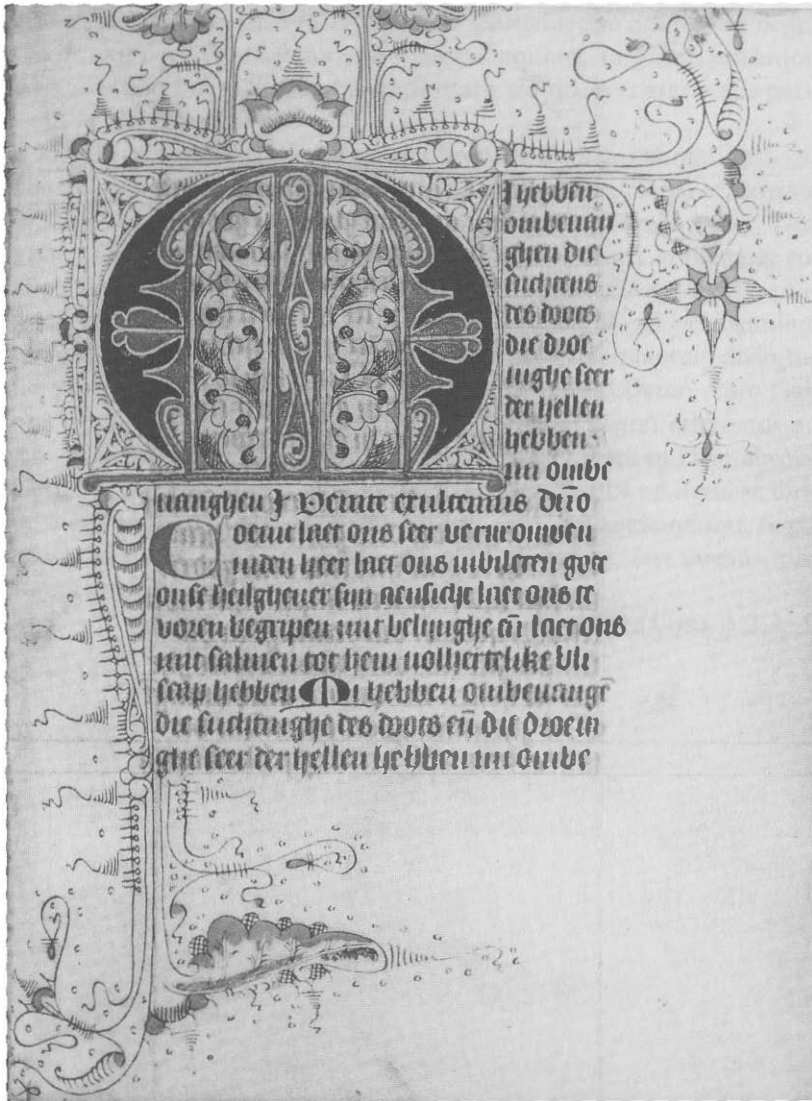 MI hebben
ombeuan
ghen die
suchtens
des doots
die droe
inghe seer
der hellen
hebben
mi ombe
uanghen p̄ Venite exultemus dn̄o
Coemt laet ons seer vervrouwen
inden heer laet ons iubileren gode
onse heilgheuer sijn aensicht laet ons te
voren begripen mit belijnghe en̄ laet ons
mit salmen tot hem uolhertelike bli
scap hebben Mi hebben ombeuangē
die suchtinghe des doots en̄ die droein
ghe seer der hellen hebben mi ombe